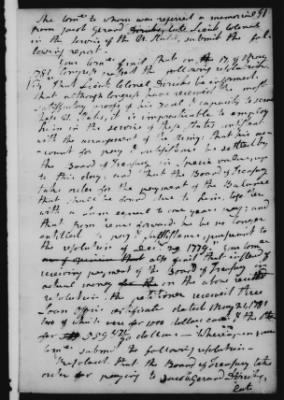 The Comee to whom was referred a memorial 91
from Jacob Gerard Diricks, late Lieut Colonel
in the Service of the U. States, submit the fol-
lowing report.
Your Comee find, that on the 17th of May
1781, Congress passed the following resolution
viz, That Lieut Colonel Diricks be informed,
that although Congress have received the most
satisfactory proofs of his zeal & capacity to serve
these U. States, it is impracticable to employ
him in the service of these States, consistent
with the arrangement of the Army: That his ac-
count for pay & subsistence be settled by
the Board of Treasury in specie value, up
to this day, and that the Board of Treasury
take order for the payment of the Balance
that shall be found due to him, together
with a sum equal to one years pay; and
that from thence forward he be no longer
entitled to pay & subsistence, pursuant to
the resolution of Decr. 1779. Your Comee
also find that instead of
receiving payment of the Board of Treasury in
actual money on the above
resolution, the petitioner received three
Loan office certificates dated May 24. 1781
two of which were for 1000 dollars each & the other
for dollars — Whereupon your
Comee submit the following resolution —
Resolved, that the Board of Treasury take
order for paying to Jacob Gerard Diricks,
late